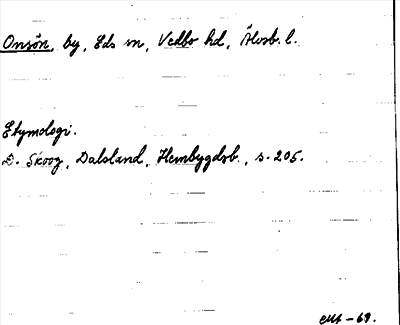 Onsön, by, Eds sn, Vedbo hd, Älvsb. l.
Etymologi.
D. Skoog, Dalsland, Hembygdsb., s. 205.
-69.